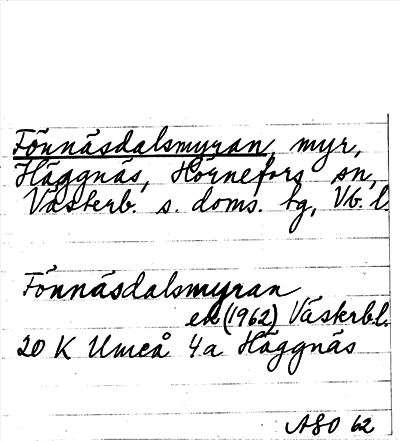 Fönnäsdalsmyran, myr,
Häggnäs, Hörnefors sn,
Västerb. s. doms. tg, Vb. l.
Fönnäsdalsmyran
ek (1962) Västerbl.
20 K Umeå 4a Häggnäs
ASO 62